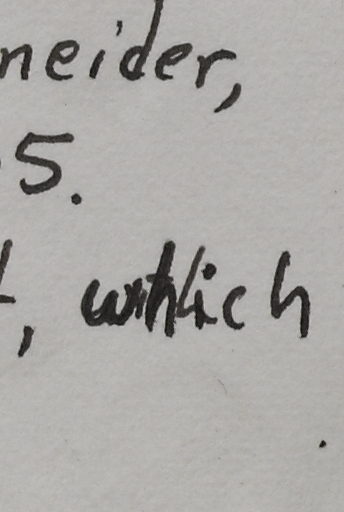 neider,
5.
, wittlich